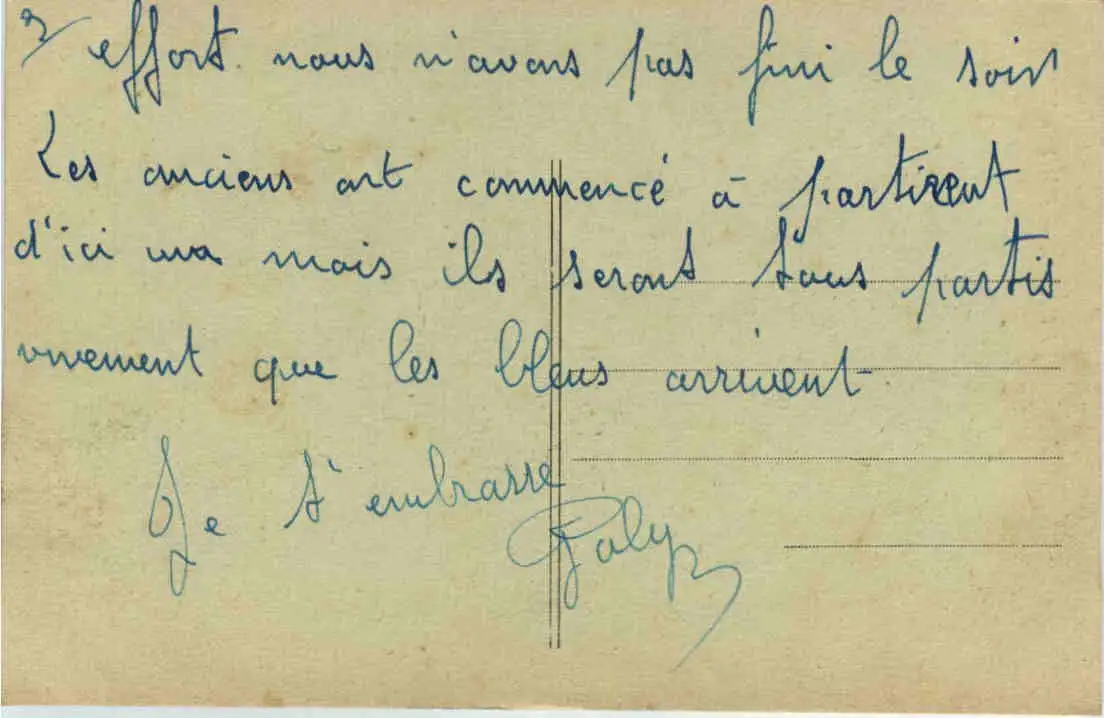 2
effort nous n'avons pas fini le soir
Les anciens ont commencé à partirent
d'ici un mois ils seront tous partis
vivement que les bleus arrivent
Je t'embrasse